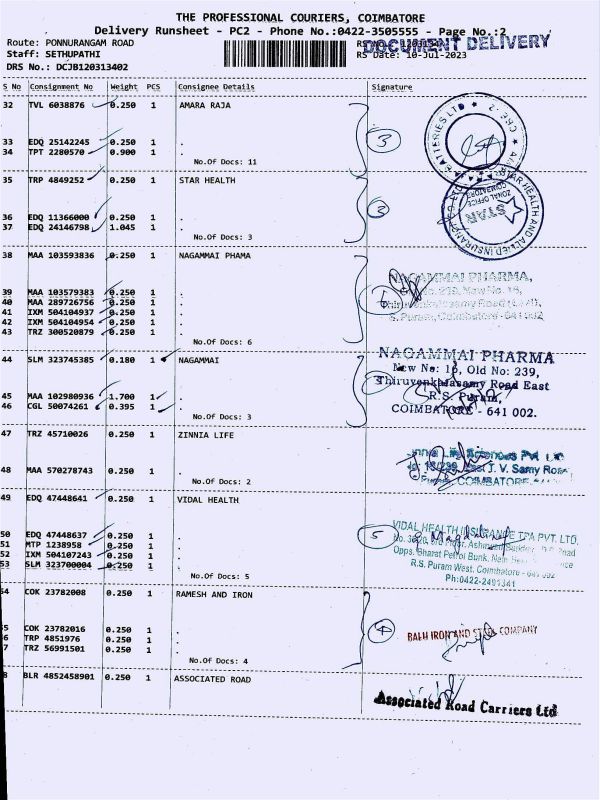 THE PROFESSIONAL COURIERS, COIMBATORE
Delivery Runsheet - PC2 - Phone No.:0422-3505555 - Page No.:2
Route: PONNURANGAM ROAD
DOCUMENT DELIVERY
Staff: SETHUPATHI
RS Date: 10-Jul-2023
DRS No.: DCJB120313402
S No Consignment No Weight PCS Consignee Details Signature
32 TVL 6038876 0.250 1 AMARA RAJA
33 EDQ 25142245 0.250 1 .
34 TPT 2280570 0.900 1 .
No.Of Docs: 11
3
BATTERIES LTD
CBE-2
35 TRP 4849252 0.250 1 STAR HEALTH
36 EDQ 11366000 0.250 1 .
37 EDQ 24146798 1.045 1 .
No.Of Docs: 3
STAR HEALTH AND ALLIED INSURANCE CO. LTD
ZONAL OFFICE
COIMBATORE
STAR
38 MAA 103593836 0.250 1 NAGAMMAI PHAMA
39 MAA 103579383 0.250 1 .
40 MAA 289726756 0.250 1 .
41 IXM 504104937 0.250 1 .
42 IXM 504104954 0.250 1 .
43 TRZ 300520879 0.250 1 .
No.Of Docs: 6
6
NAGAMMAI PHARMA,
New No. 16,
Thiruvenkatasamy Road (East),
R.S. Puram, Coimbatore - 641 002
44 SLM 323745385 0.180 1 NAGAMMAI
45 MAA 102980936 1.700 1 .
46 CGL 50074261 0.395 1 .
No.Of Docs: 3
NAGAMMAI PHARMA
New No: 16, Old No: 239,
Thiruvenkatasamy Road East
R.S. Puram,
COIMBATORE - 641 002.
47 TRZ 45710026 0.250 1 ZINNIA LIFE
48 MAA 570278743 0.250 1 .
No.Of Docs: 2
Life Sciences Pvt Ltd
East T. V. Samy Road
COIMBATORE
49 EDQ 47448641 0.250 1 VIDAL HEALTH
50 EDQ 47448637 0.250 1 .
51 MTP 1238958 0.250 1 .
52 IXM 504107243 0.250 1 .
53 SLM 323700004 0.250 1 .
No.Of Docs: 5
5
VIDAL HEALTH INSURANCE TPA PVT. LTD,
Opps. Bharat Petrol Bunk,
R.S. Puram West, Coimbatore
Ph:0422-2491341
54 COK 23782008 0.250 1 RAMESH AND IRON
5 COK 23782016 0.250 1 .
6 TRP 4851976 0.250 1 .
7 TRZ 56991501 0.250 1 .
No.Of Docs: 4
4
BALU IRON AND STEEL COMPANY
8 BLR 4852458901 0.250 1 ASSOCIATED ROAD
Associated Road Carriers Ltd